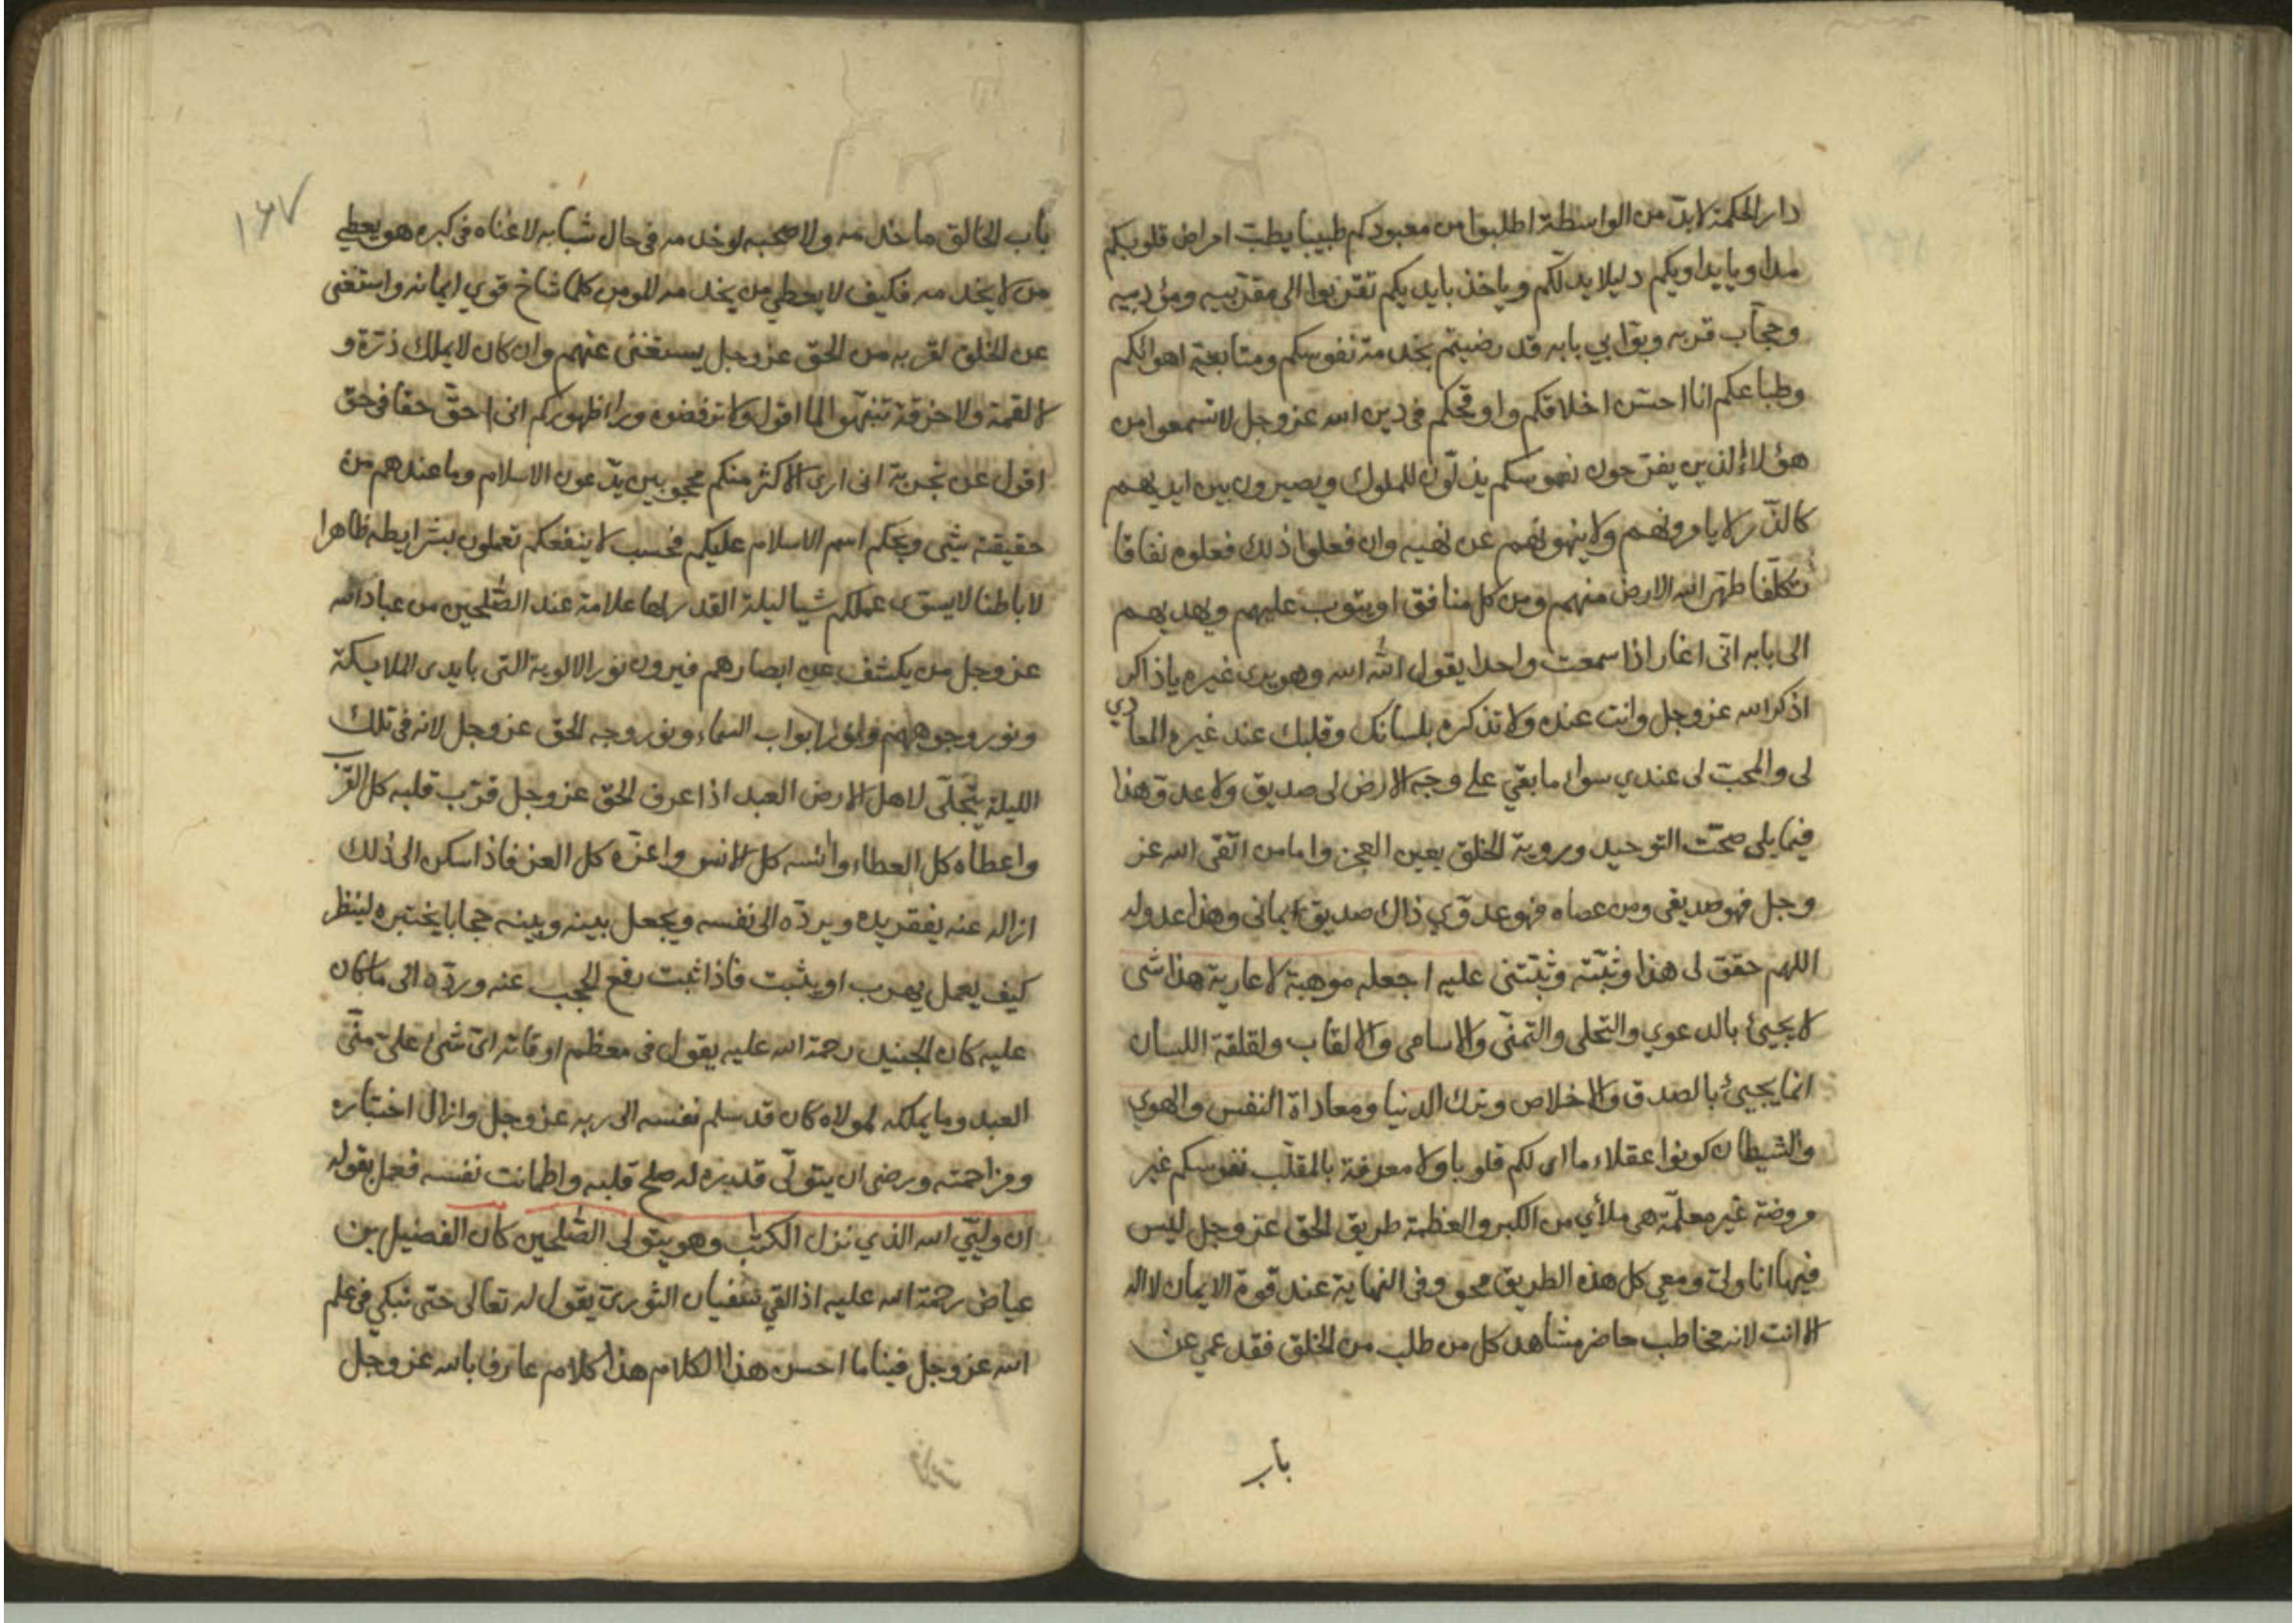 دار الحكمة لابدّ من الواسطة اطلبوا من معبودكم طبيبا يطبّ امراض قلوبكم
مداويا يداويكم دليلا يدلّكم وياخذ بايديكم تقرّبوا الى مقرّبيه ومؤدبيه
وحجّاب قربه وبوّابي بابه قد رضيتم بخدمة نفوسكم ومتابعة اهوائكم
وطباعكم انا احسّن اخلاقكم واوقحكم فى دين الله عز وجل لا تسمعوا من
هؤلاء الذين يفرّحون نفوسكم يذلّون للملوك ويصيرون بين ايديهم
كالذّر لا يامرونهم ولا ينهونهم عن نهيه وان فعلوا ذلك فعلوه نفاقا
تكلّفا طهّر الله الارض منهم ومن كل منافق او يتوب عليهم ويهديهم
الى بابه انّى اغار اذا سمعت واحدا يقول الله الله وهو يرى غيره يا ذاكر
اذكر الله عز وجل وانت عنده ولا تذكره بلسانك وقلبك عند غيره المعادي
لى والمحبّ لى عندي سواء ما بقي على وجه الارض لى صديق ولا عدوّ هذا
فيما يلى صحّت التوحيد وروية الخلق بعين العجز واما من اتّقى الله عز
وجل فهو صديقى ومن عصاه فهو عدوّي ذاك صديق ايمانى وهذا عدوله
اللهم حقق لى هذا وثبّته وثبّتنى عليه اجعله موهبة لا عارية هذا شى
لا يجيئ بالدعوي والتحلى والتمنّى والاسامى والالقاب ولقلقة اللسان
انما يجيئ بالصدق والاخلاص وترك الدنيا ومعاداة النفس والهوي
والشيطان كونوا عقلاء ما ارى لكم قلوبا ولا معرفة بالمقلّب نفوسكم غير
مروضة غير معلّمة هى ملأي من الكبر والعظمة طريق الحق عز وجل ليس
فيها انا ولى ومعي كل هذه الطريق محو وفى النهاية عند قوة الايمان لا اله
الا انت لانه مخاطب حاضر مشاهد كل من طلب من الخلق فقد عمي عن
باب
١٦٧
باب الخالق ما خدمه ولا صحبه لو خدمه فى حال شبابه لاغناه فى كبره هو يعطي
من لا يخدمه فكيف لا يعطي من يخدمه المومن كلما شاخ قوي ايمانه واستغنى
عن الخلق لقربه من الحق عز وجل يستغنى عنهم وان كان لا يملك ذرّة و
لا لقمة ولا خرقة تنبهّوا لما اقول ولا ترفضوه ورا اظهوركم انى احقّ حقا فى حق
اقول عن تجربة انى ارى الاكثر منكم محجوبين يدّعون الاسلام وما عندهم من
حقيقته شى ويحكم اسم الاسلام عليكم فحسب لا ينفعكم تعملون بشرايطه ظاهرا
لا باطنا لا يسوى عملكم شيا ليلة القدر لها علامة عند الصّلحين من عباد الله
عز وجل من يكشف عن ابصارهم فيرون نور الالوية التى بايدى الملايكة
ونور وجوههم وانوار ابواب السماء ونور وجه الحق عز وجل لانه فى تلك
الليلة يتجلّى لاهل الارض العبد اذا عرف الحق عز وجل قرّب قلبه كل القرب
واعطاه كل العطاء وانسه كل الانس واعزّه كل العز فاذا سكن الى ذلك
ازاله عنه يفقر يده ويردّه الى نفسه ويجعل بينه وبينه حجابا يختبره لينظر
كيف يعمل يهرب او يثبت فاذا ثبت رفع الحجب عنه وردّه الى ما كان
عليه كان الجنيد رحمة الله عليه يقول فى معظم اوقاته ايّ شئ علىّ منّى
العبد وما يملكه لمولاه كان قد سلم نفسه الى ربه عز وجل وازال اختياره
ومزاحمته ورضى ان يتولّى قديره له صلح قلبه واطمانت نفسه فعمل بقوله
ان وليّي الله الذي نزل الكتب وهو يتولى الصّلحين كان الفضيل بن
عياض رحمة الله عليه اذا لقي سفيان الثوريّ يقول له تعالى حتى نبكي فى علم
الله عز وجل فينا ما احسن هذا الكلام هذا كلام عارف بالله عز وجل